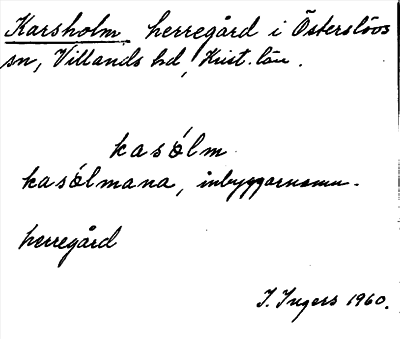 Karsholm herregård i Österslövs
sn, Villands hd, Krist. län.
kasólm
kasólmana, inbyggarnamn.
herregård
I. Ingers 1960.